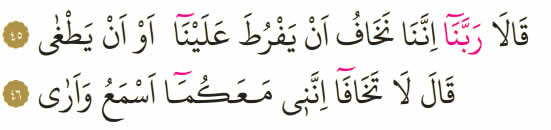 قَالَا رَبَّنَٓا اِنَّنَا نَخَافُ اَنْ يَفْرُطَ عَلَيْنَٓا اَوْ اَنْ يَطْغٰى ٤٥
قَالَ لَا تَخَافَٓا اِنَّن۪ي مَعَكُمَٓا اَسْمَعُ وَاَرٰى ٤٦